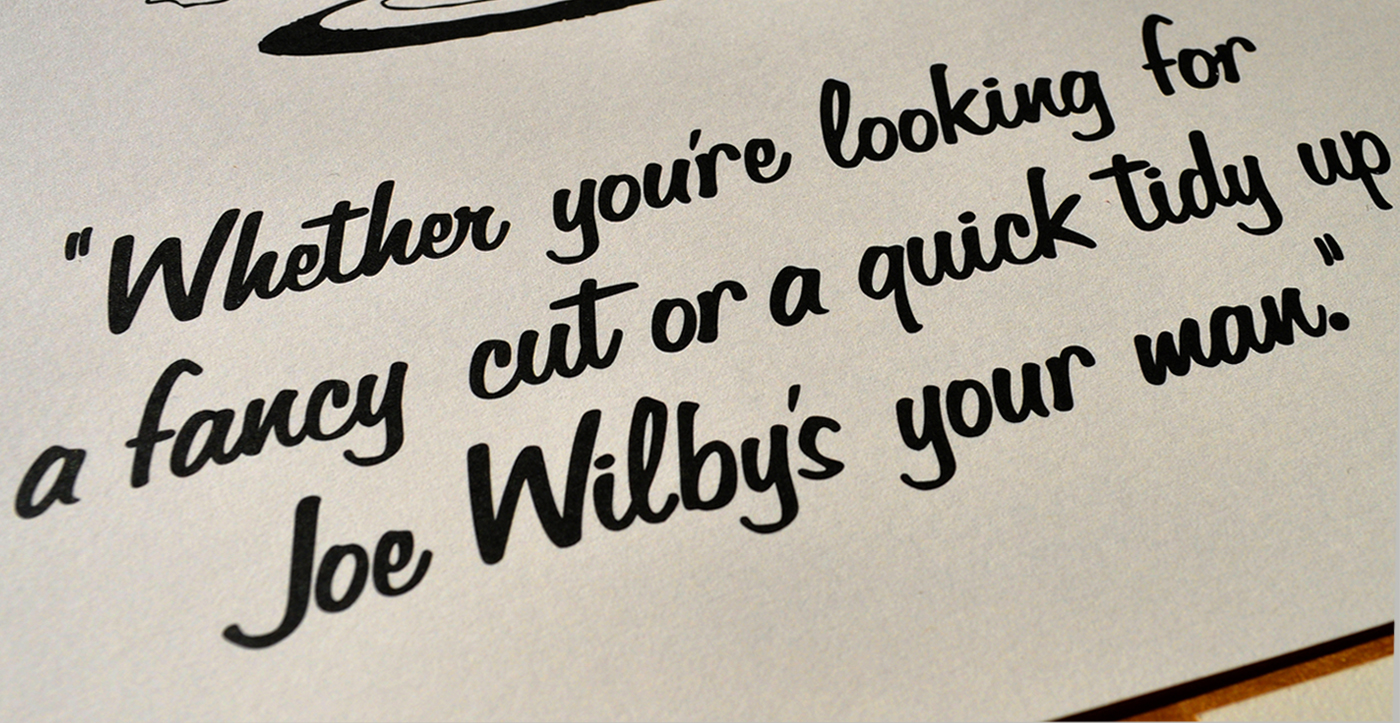 "Whether you're looking for
a fancy cut or a quick tidy up
Joe Wilby's your man."